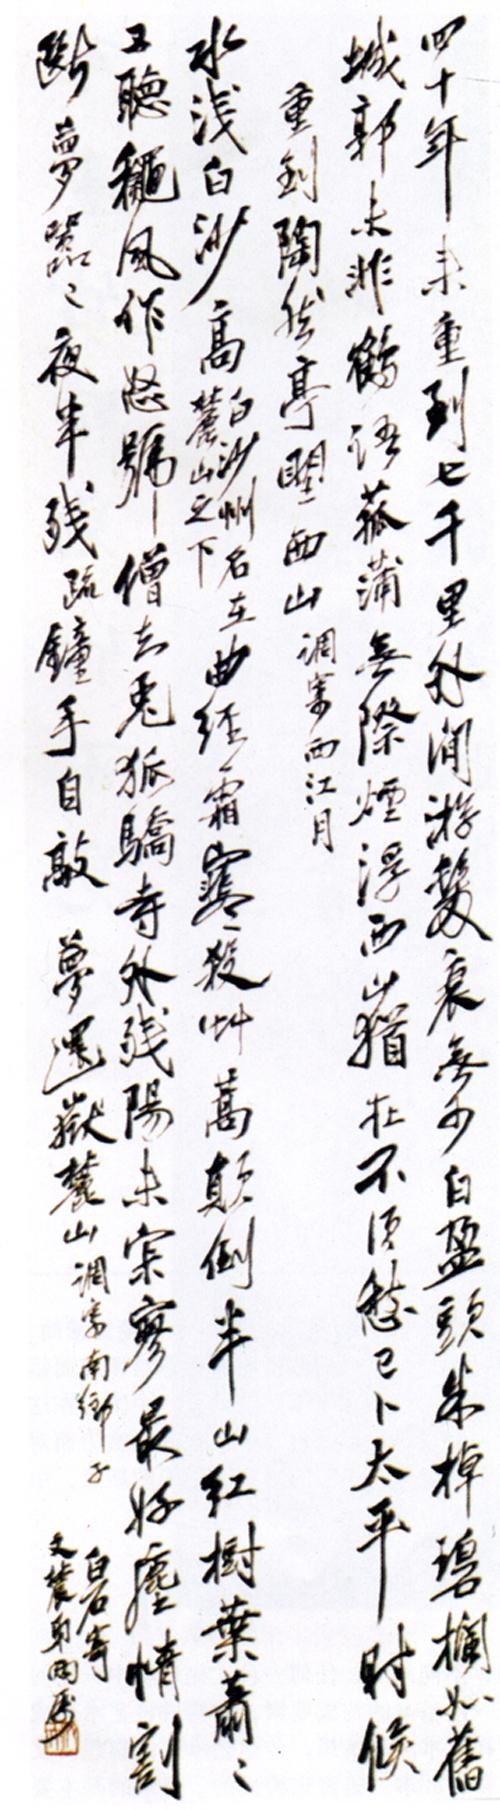 四十年來重到七千里外閒游髮衰無可白盈頭朱棹碧欄如舊
城郭未非鶴語菰蒲無際煙浮西山猶在不須愁已卜太平時候
重到陶然亭望西山調寄西江月
水淺白沙高白沙州名在麓山之下曲徑霜寒殺艸蒿顛倒半山紅樹葉蕭ミ
聽龝風作怒號僧去兔狐驕寺外殘陽未寂寥最好塵情割
斷夢囂ミ夜半殘疏鐘手自敲夢還嶽麓山調寄南鄉子
白石寄
文農